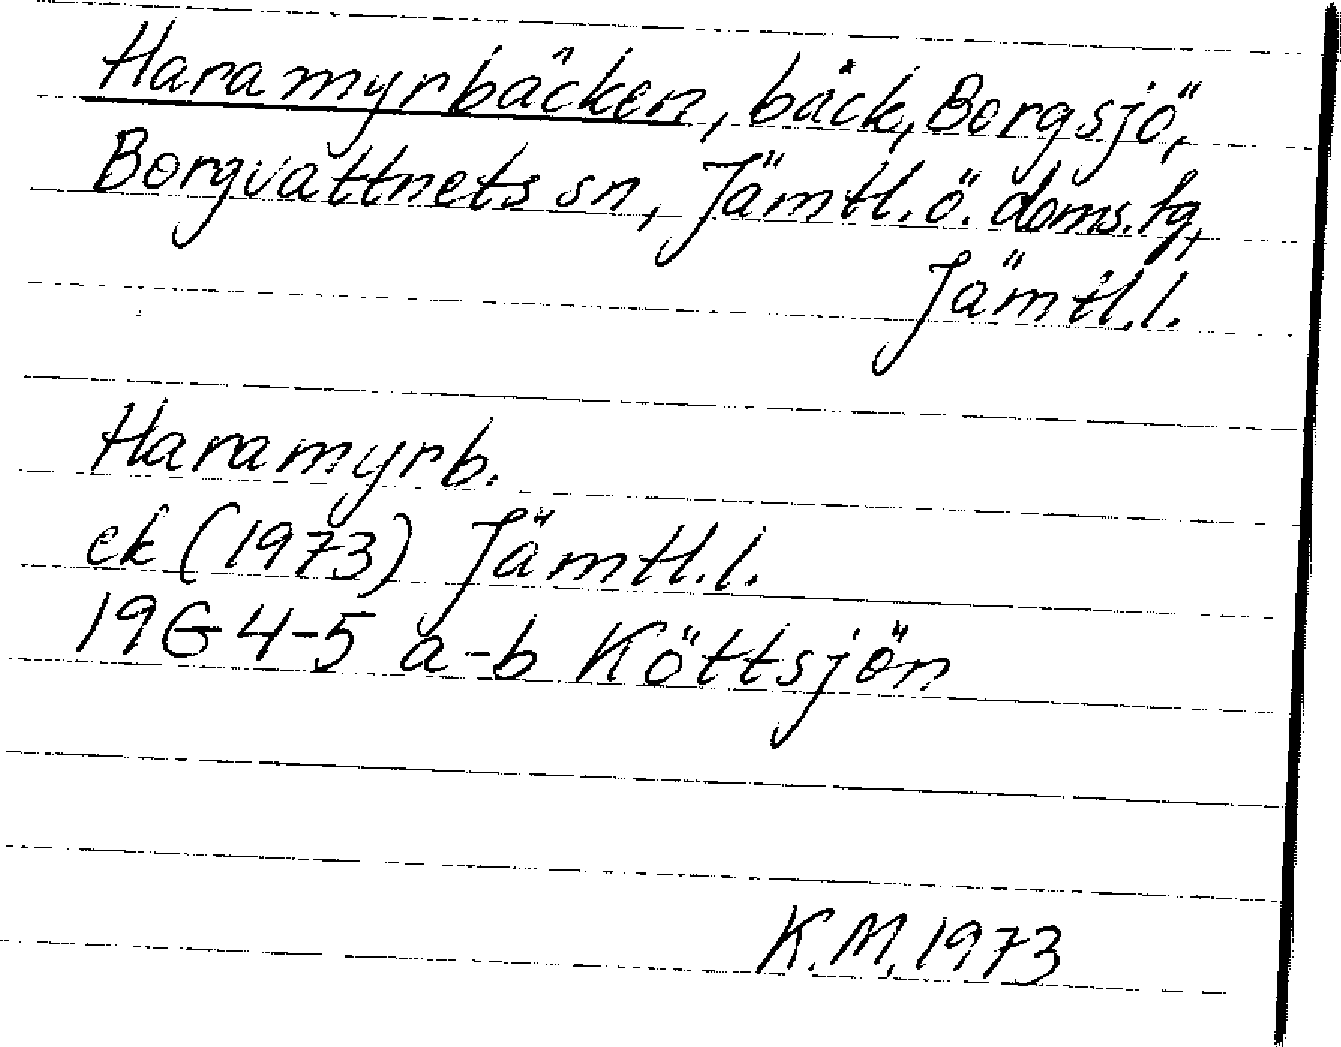 Haramyrbäcken, bäck, Borgsjö,
Borgvattnets sn, Jämtl. ö. doms. tg,
Jämtl. l.
Haramyrb.
ek (1973) Jämtl. l.
19G 4-5 a-b Köttsjön
K.M. 1973